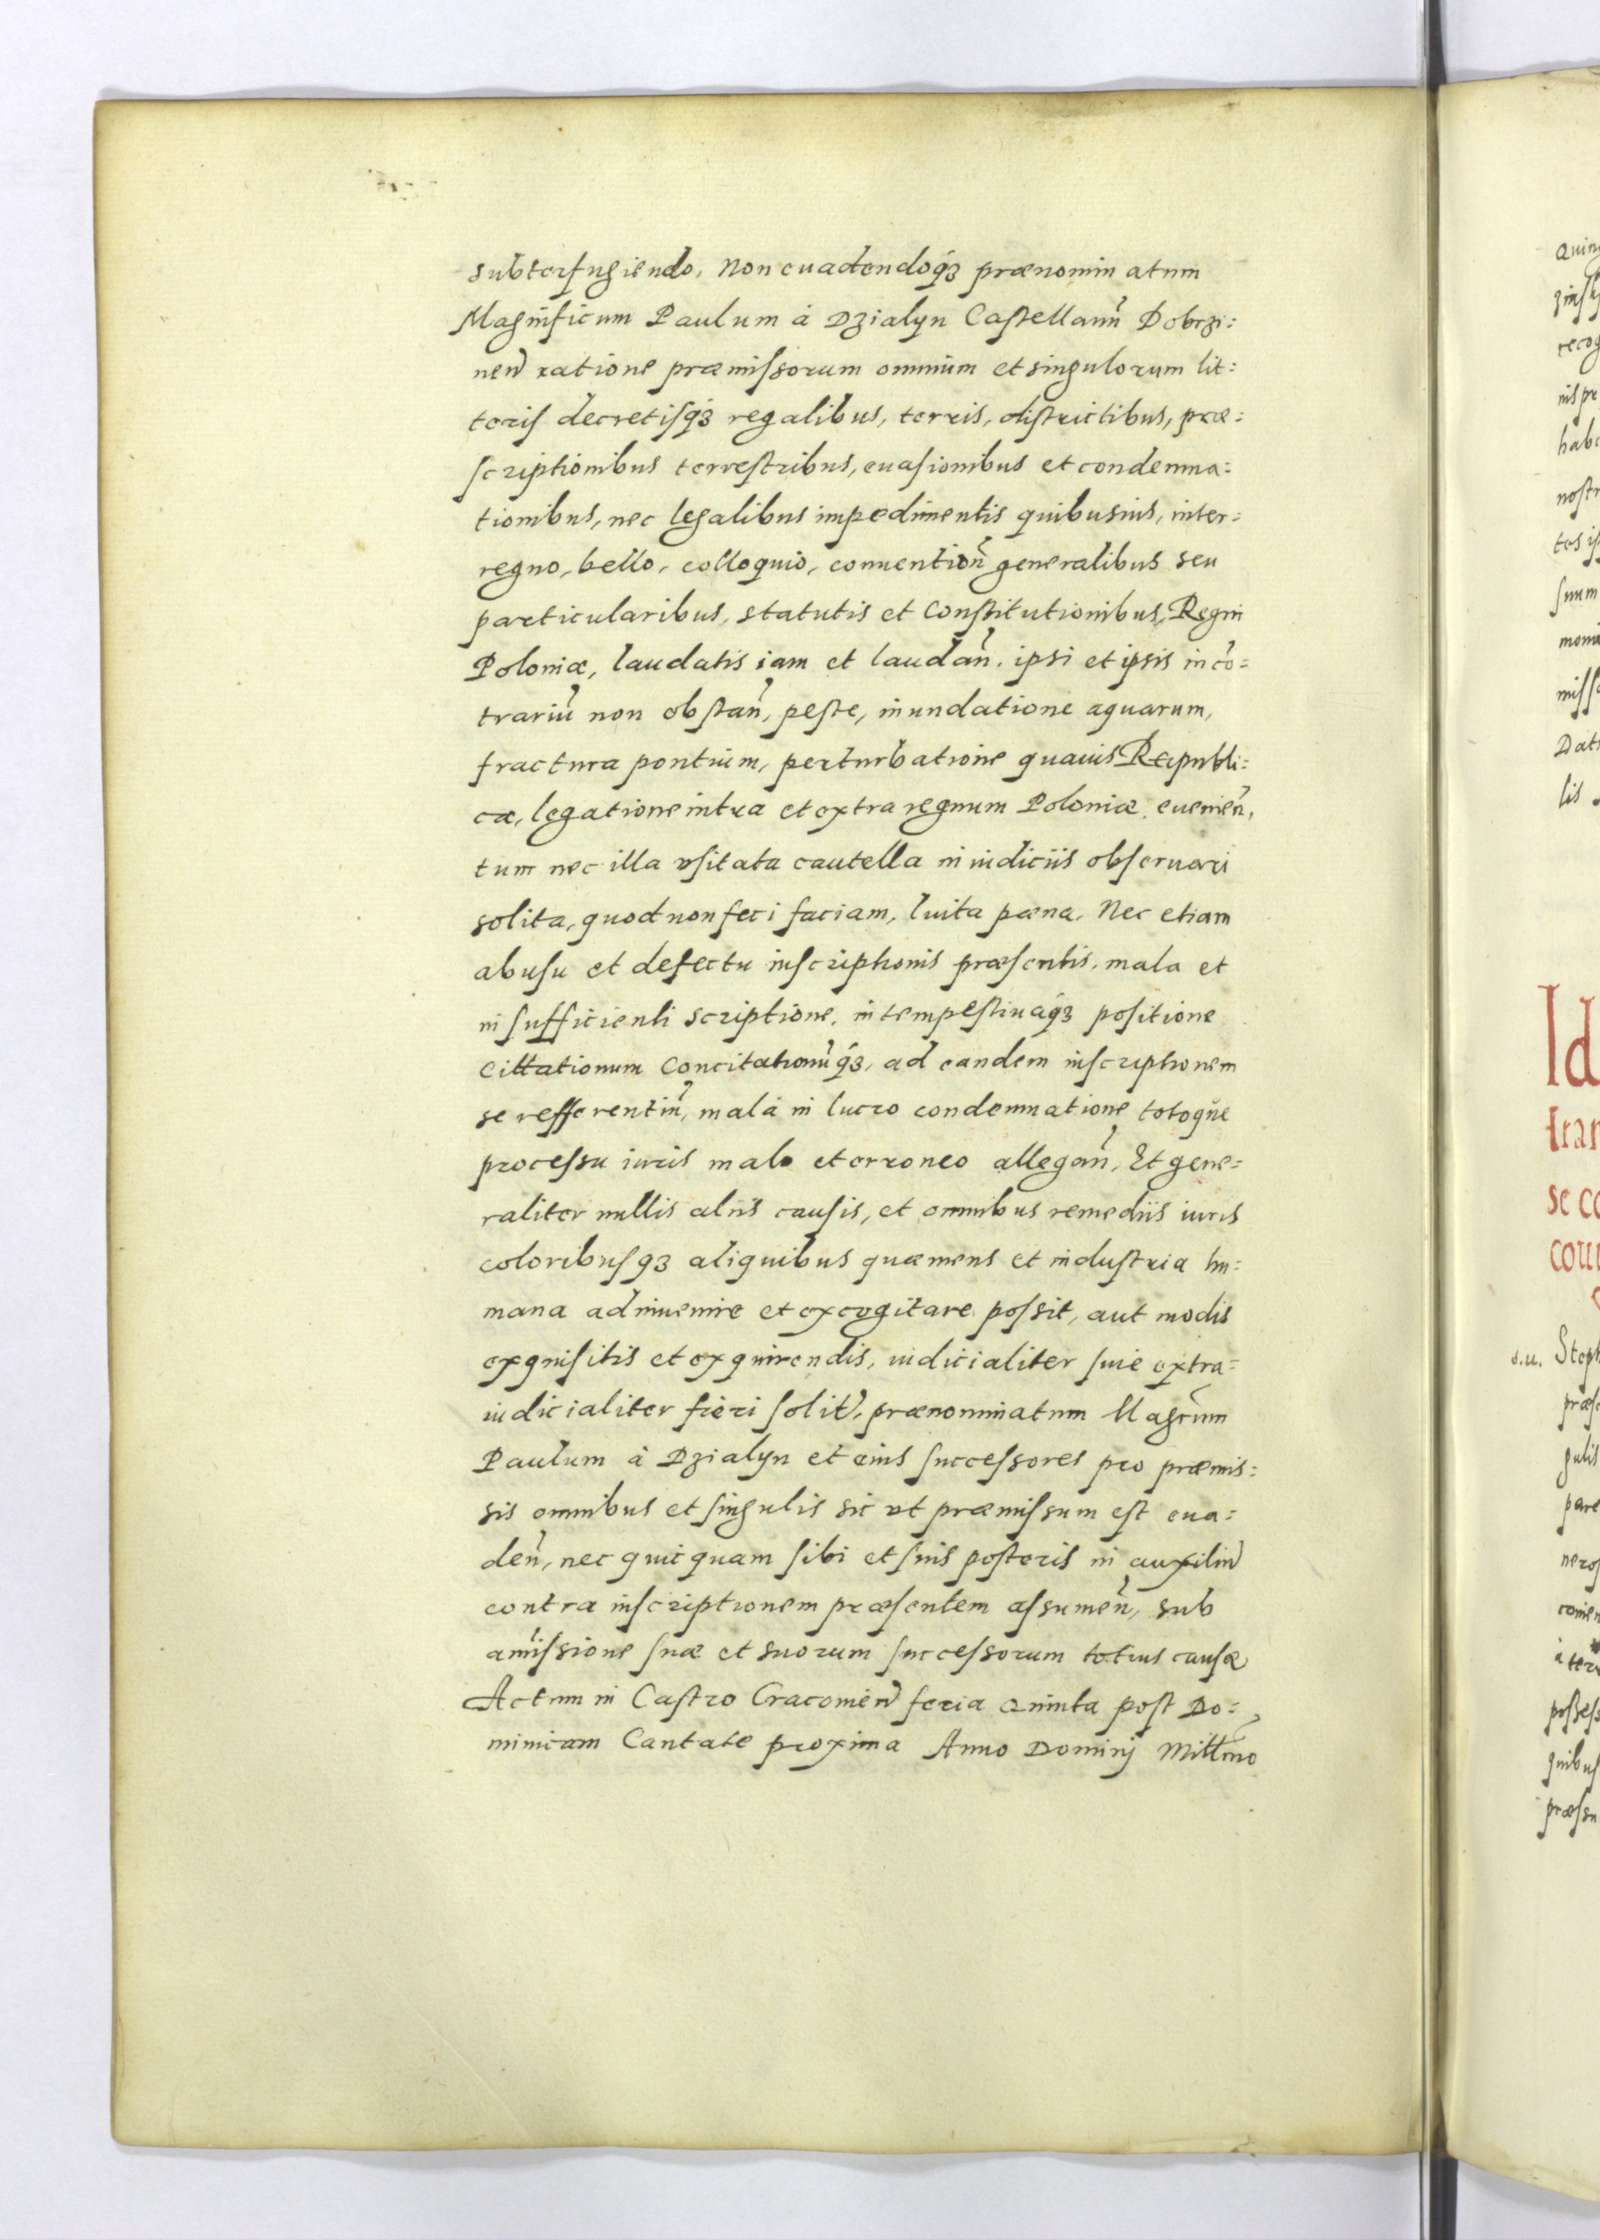 subterfugiendo, Non euadendoq́ꝫ prænominatum
Magnificum Paulum à Dzialyn Castellanũ Dobrzi:
neñ ratione præmiſsorum omnium et singulorum lit:
teriſ decretiſq́ꝫ regalibus, terris, diſtrictibus, præ:
ſcriptionibus terreſtribus, euaſionibus et condemna:
tionibus, nec legalibus impedimentis quibusuis, inter:
regno, bello, colloquio, conuentioñ generalibus seu
particularibus, statutis et Conſtitutionibus, Regni
Poloniæ, laudatis iam et laudañ. ipsi et ipsis in cõ=
trariũ non obſtañ, peſte, inundatione aquarum,
fractura pontium, perturbatione quauis Reipubli:
cæ, legatione intra et extra regnum Poloniæ, euenieñ,
tum nec illa vſitata cautella in iudiciis obſeruari
solita, quod non feci faciam, luita pæna. Nec etiam
abuſu et defectu inſcriptionis præſentis, mala et
inſufficienti scriptione, intempeſtiuaq́ꝫ poſitione
Cittationum Concitationũq́ꝫ, ad eandem inſcriptionem
se refferentiũ, mala in lucro condemnatione totoqũe
proceſsu iuris malo et erroneo allegañ, Et gene=
raliter nullis aliis cauſis, et omnibus remediis iuris
coloribuſqꝫ aliquibus quæ mens et induſtria hu:
mana adinuenire et excogitare poſsit, aut modis
exquiſitis et exquirendis, iudicialiter ſiue extra=
iudicialiter fieri ſolit̃, prænominatum Magcũm
Paulum à Dzialyn et eius ſucceſsores pro præmis:
sis omnibus et ſingulis sic vt præmiſsum eſt eua=
deñ, nec quicquam ſibi et ſuis poſteris in auxiliũ
contra inſcriptionem præſentem aſsumeñ, sub
amiſsione ſuæ et suorum ſucceſsorum totius cauſæ
Actum in Caſtro Cracouieñ feria Quinta poſt Do=
minicam Cantate proxima Anno Dominj Millm̃o